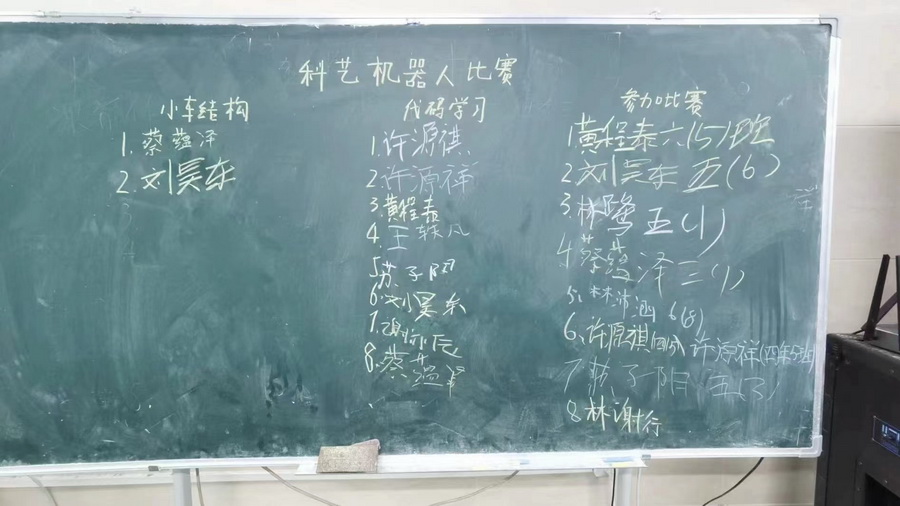 科艺机器人比赛
小车结构
1.蔡蕴泽
2.刘昊东
代码学习
1.许源祺
2.许源祥
3.黄程泰
4.王轶凡
5.苏子阳
6.刘昊东
8.蔡蕴泽
参加比赛
1.黄程泰六(5)班
2.刘昊东 五(6)
3.林鹭五(1)
4.蔡蕴泽三(1)
5.林沛涵 6(8)
6.许源祺 许源祥
7.苏子阳 五(3)
8.林谢行